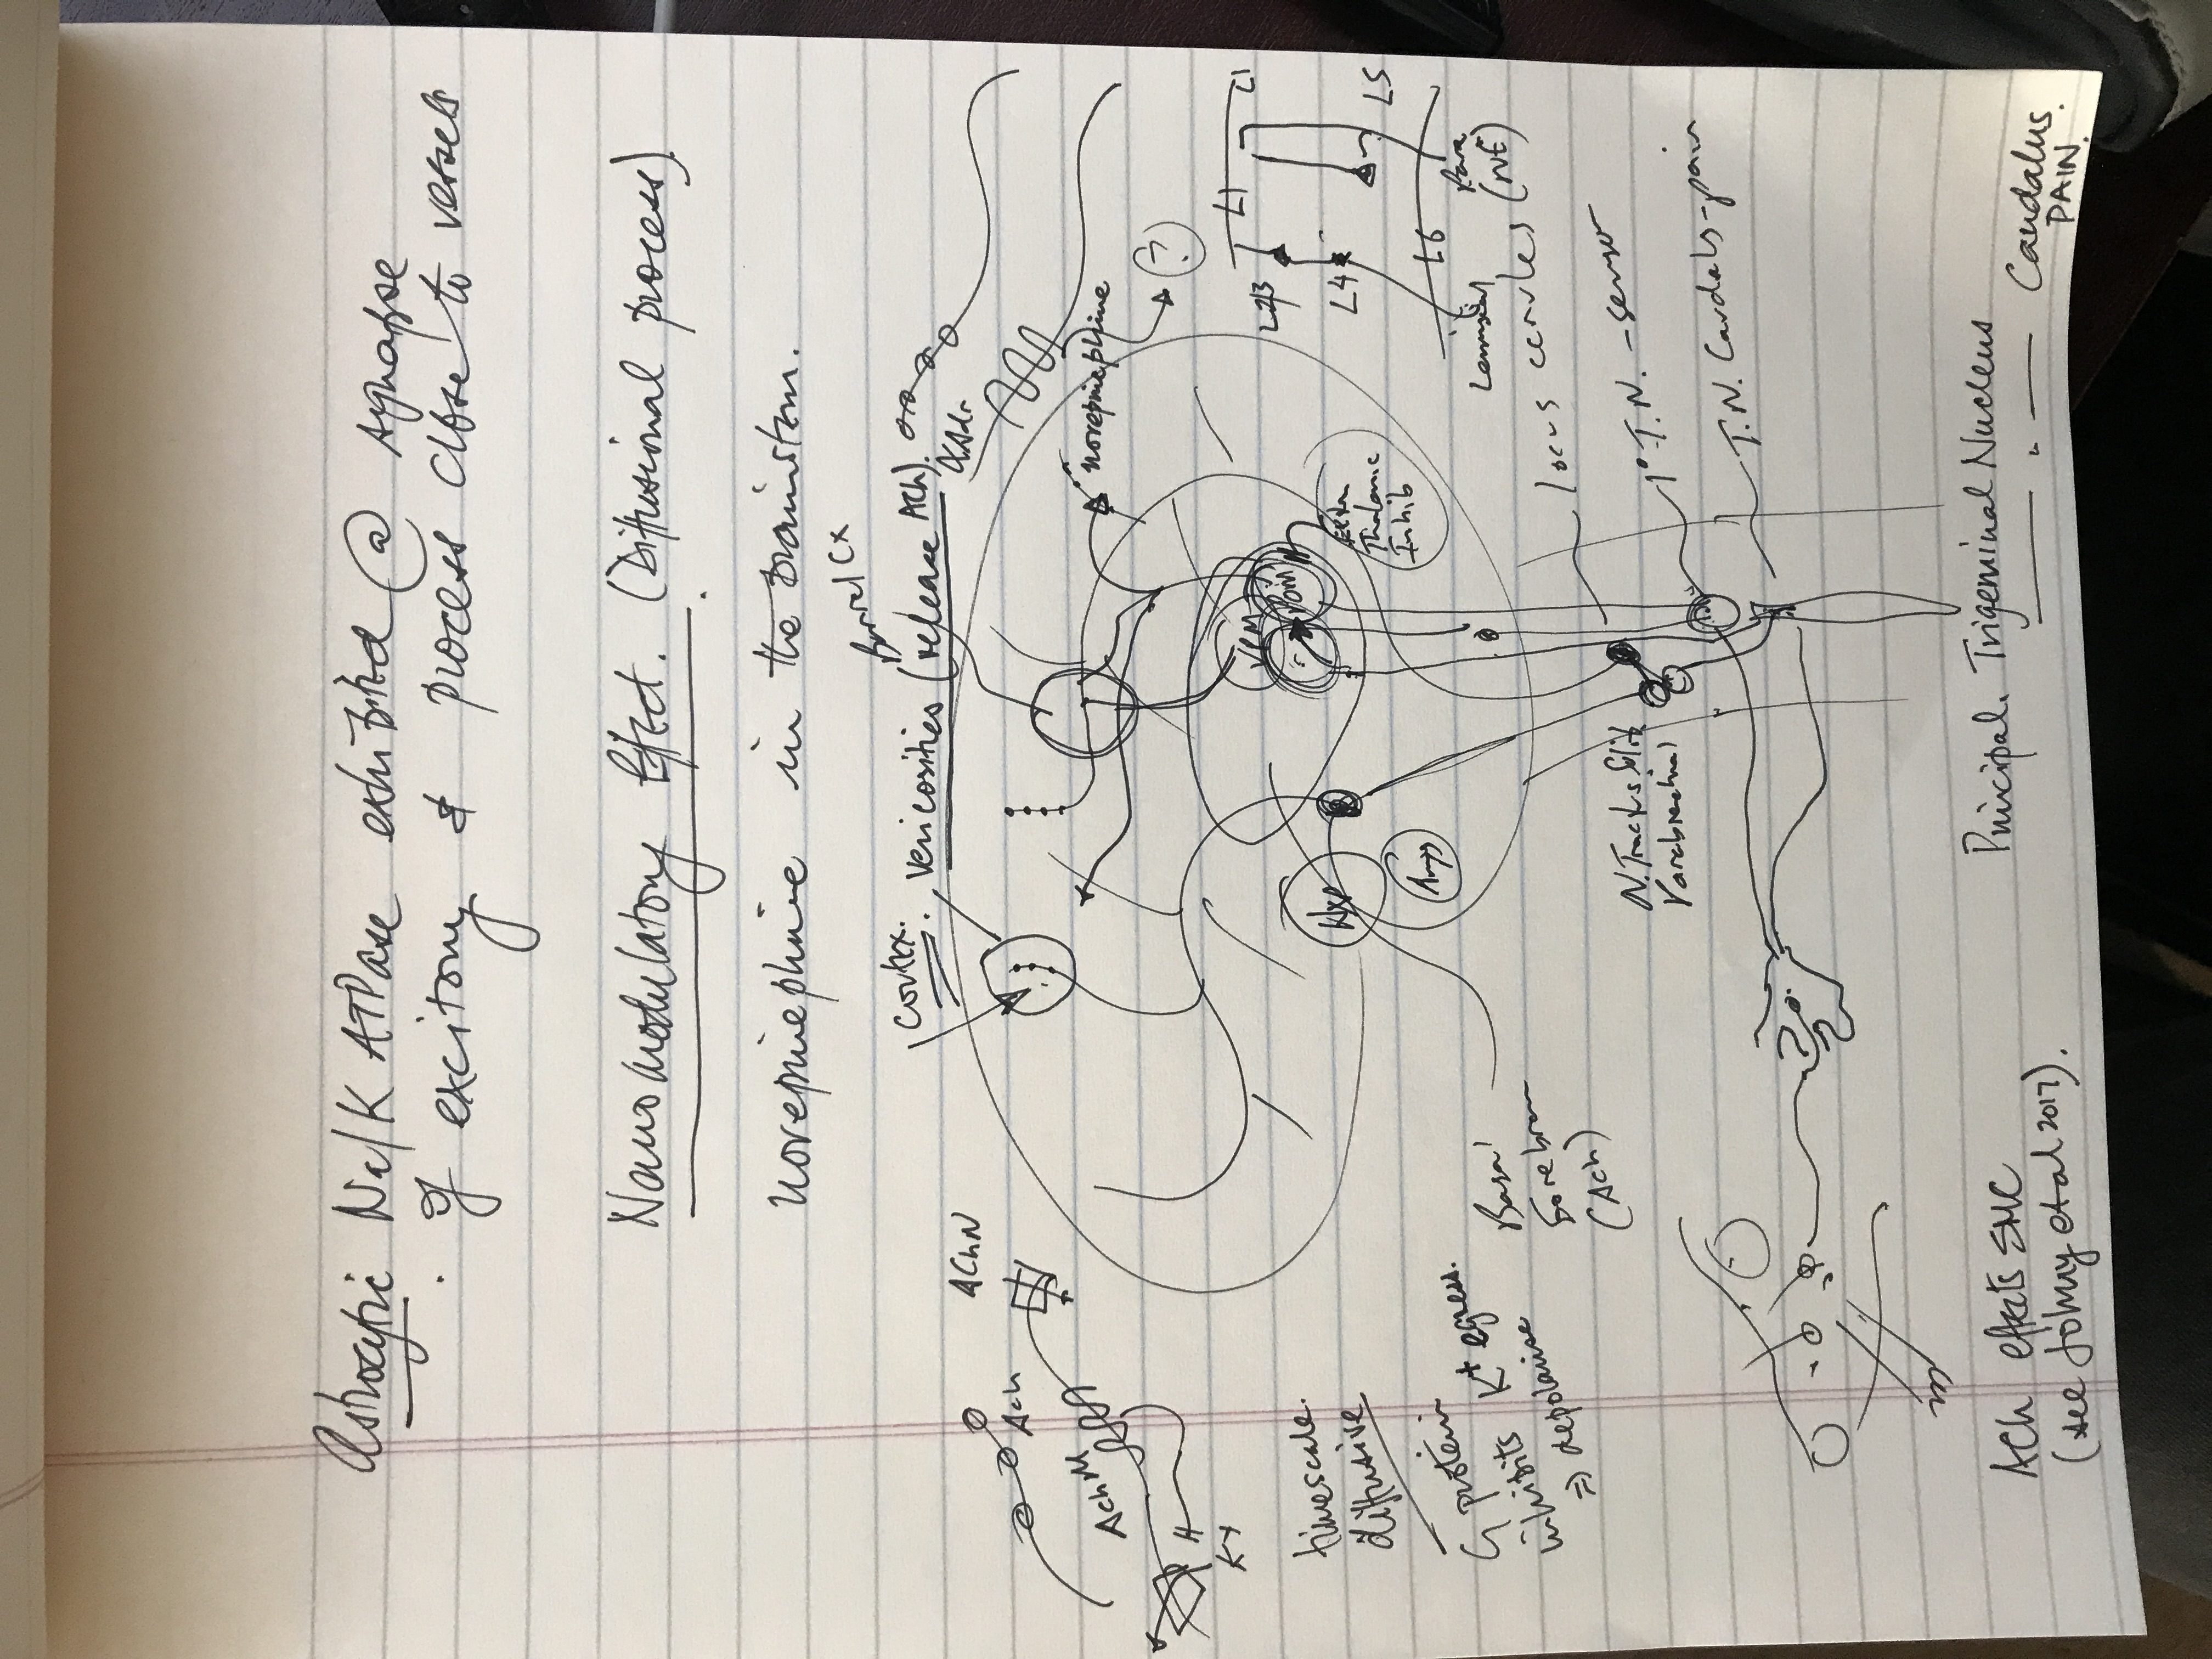 Astrocytic Na/K ATPase exhibited @ synapse
of excitory & process close to vessels
Nanomodulatory Effect. (Diffusional process).
norepinephine in the brainstem.
Barrel Cx
Cortex.
Vericosities (release ACh).
αAdr
AChN
Ach
AchM
K+
norepinephine
?
VPM
POM
L1
L1
L2/3
L4
L5
L6
Lemniscal
Para
(NE)
Extra
Thalamic
Inhib
timescale.
diffusive
G protein
inhibits K+ egress.
⇒ depolarise
Amyg
Basal
Forebrain
(Ach)
locus cerules
N. Tractus Solit
Parabrachial
1° T.N. - sensor
T.N. Caudals - pain
ACh effects SMC
(see Johny et al 2017).
Principal. Trigeminal Nucleus
Caudalus.
PAIN.